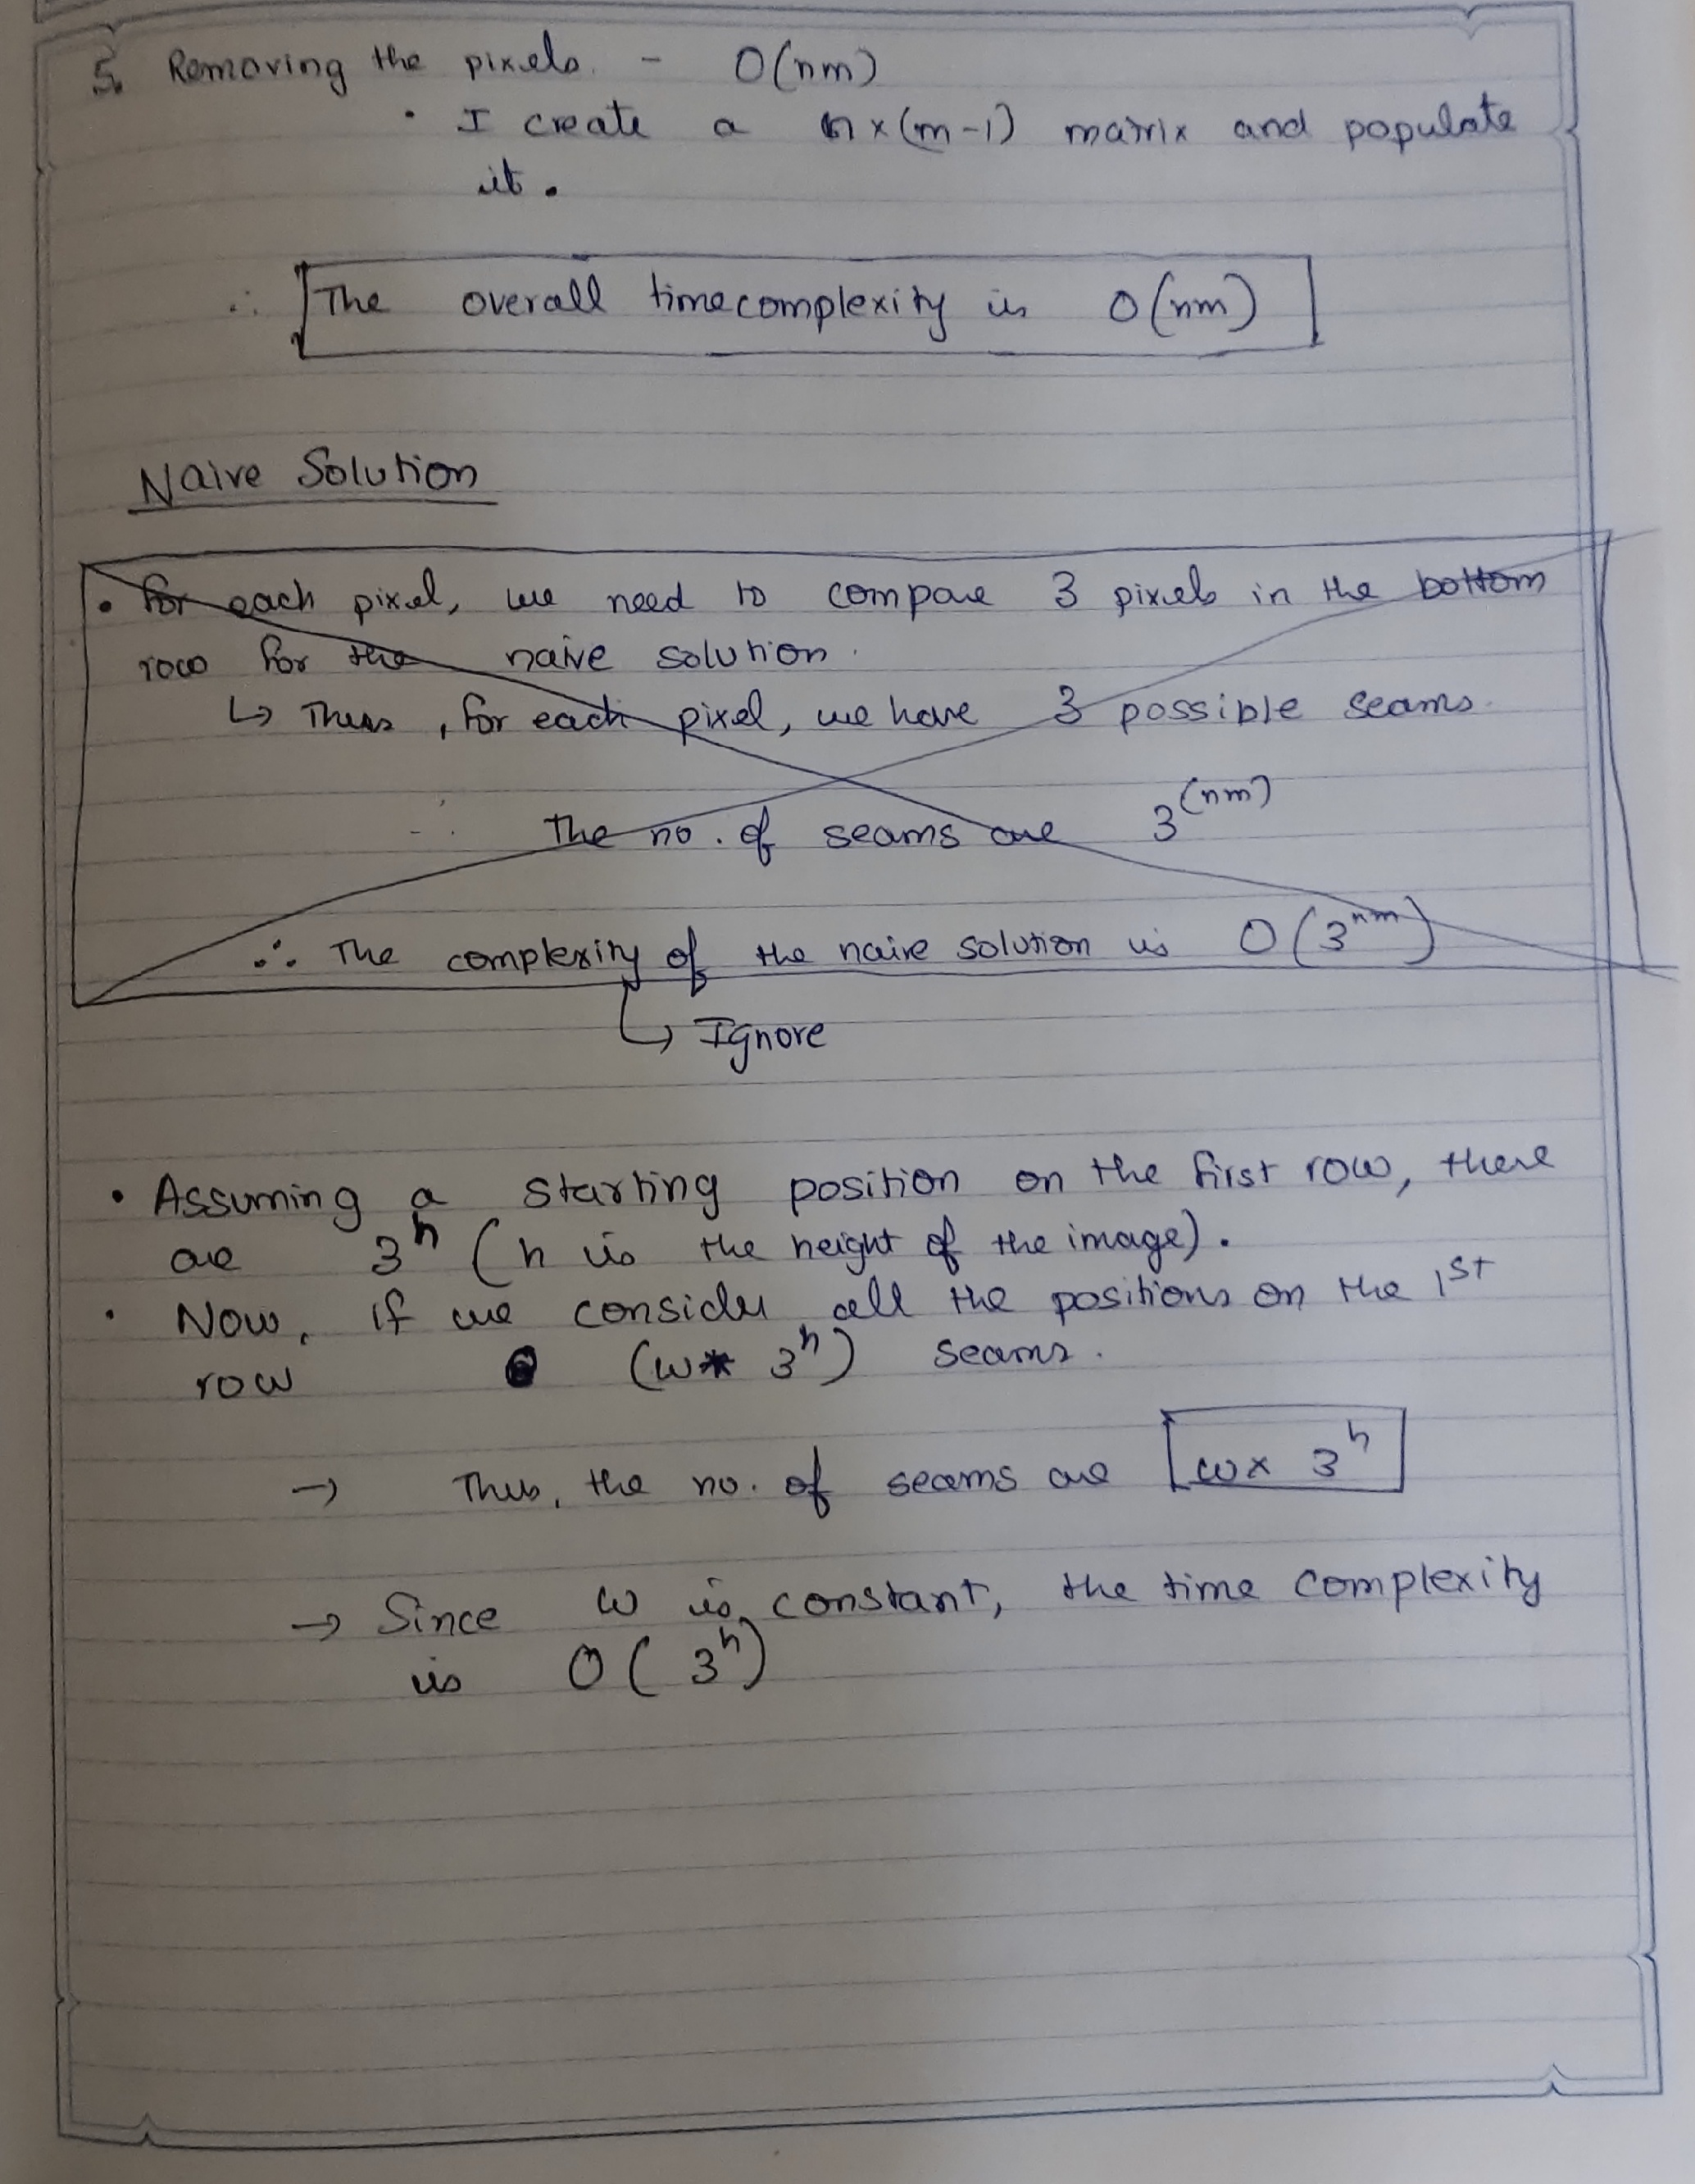 5. Removing the pixels. - O(nm)
• I create a n x (m-1) matrix and populate
it.
∴ The overall timecomplexity is O(nm)
Naive Solution
• For each pixel, we need to compare 3 pixels in the bottom
row for the naive solution.
↳ Thus, for each pixel, we have 3 possible seams.
∴ The no. of seams are 3^(nm)
∴ The complexity of the naive solution is O(3^nm)
↳ Ignore
• Assuming a starting position on the first row, there
are 3^h (h is the height of the image).
• Now, if we consider all the positions on the 1st
row (w* 3^h) seams.
→ Thus, the no. of seams are w x 3^h
→ Since w is constant, the time complexity
is O(3^h)